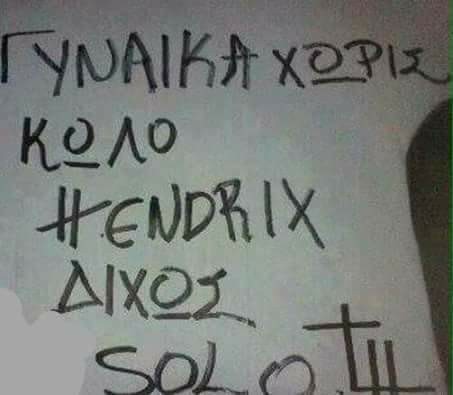 ΓΥΝΑΙΚΑ ΧΩΡΙΣ
ΚΩΛΟ
HENDRIX
ΔΙΧΩΣ
SOLO